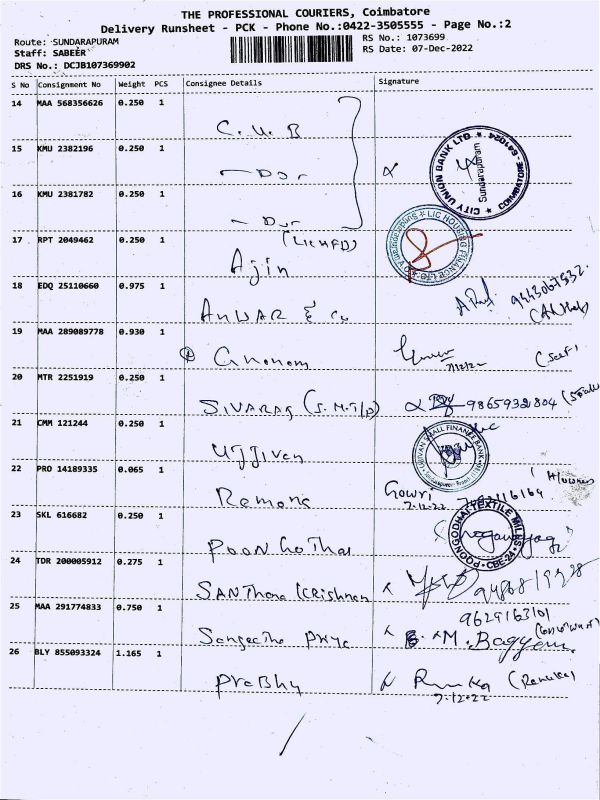 THE PROFESSIONAL COURIERS, Coimbatore
Delivery Runsheet - PCK - Phone No.:0422-3505555 - Page No.:2
Route: SUNDARAPURAM
Staff: SABEER
DRS No.: DCJB107369902
RS No.: 1073699
RS Date: 07-Dec-2022
S No Consignment No Weight PCS Consignee Details Signature
14 MAA 568356626 0.250 1
C.U.B
15 KMU 2382196 0.250 1
CITY UNION BANK LTD * COIMBATORE - 641024 * Sundarapuram
16 KMU 2381782 0.250 1
17 RPT 2049462 0.250 1
(LICHFL)
Ajin
LIC HOUSING FINANCE LTD
18 EDQ 25110660 0.975 1
ANWAR & Co
19 MAA 289089778 0.930 1
7/12/22 (Self)
20 MTR 2251919 0.250 1
SIVARAJ 9865932804
21 CMM 121244 0.250 1
Ujjivan
UJJIVAN SMALL FINANCE BANK
22 PRO 14189335 0.065 1
Remona Gowri
7.12.22
23 SKL 616682 0.250 1
Poongothai
POONGODHAI TEXTILE MILLS * CBE-24
24 TDR 200005912 0.275 1
SANThosa Krishnan
25 MAA 291774833 0.750 1
9629163101
Sangeetha Priya M. Bagyam
26 BLY 855093324 1.165 1
Prabhu Renuka (Renuka)
7.12.22